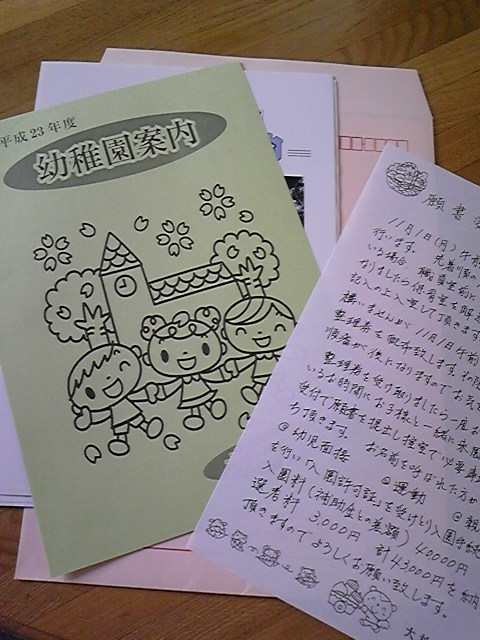 平成23年度
幼稚園案内
願書受
11月1日(月)午前
行います。先着順の
いる場合、職員室前に
なりましたら保育室を解
記入の上入室して頂きます
構いませんが11月1日午前
整理券を配布致します。その
順番が後になりますのでお気を
整理券を受け取りましたら一度お
いるお時間にお子様と一緒に来園
受付で願書を提出し控室で必要事
ち頂きます。お名前を呼ばれた方か
@幼児面接 @運動 @親
を行い「入園許可証」を受けとり入園手続
入園料(補助金との差額)40000円
選考料 3,000円 計43000円を納
頂きますのでよろしくお願い致します。